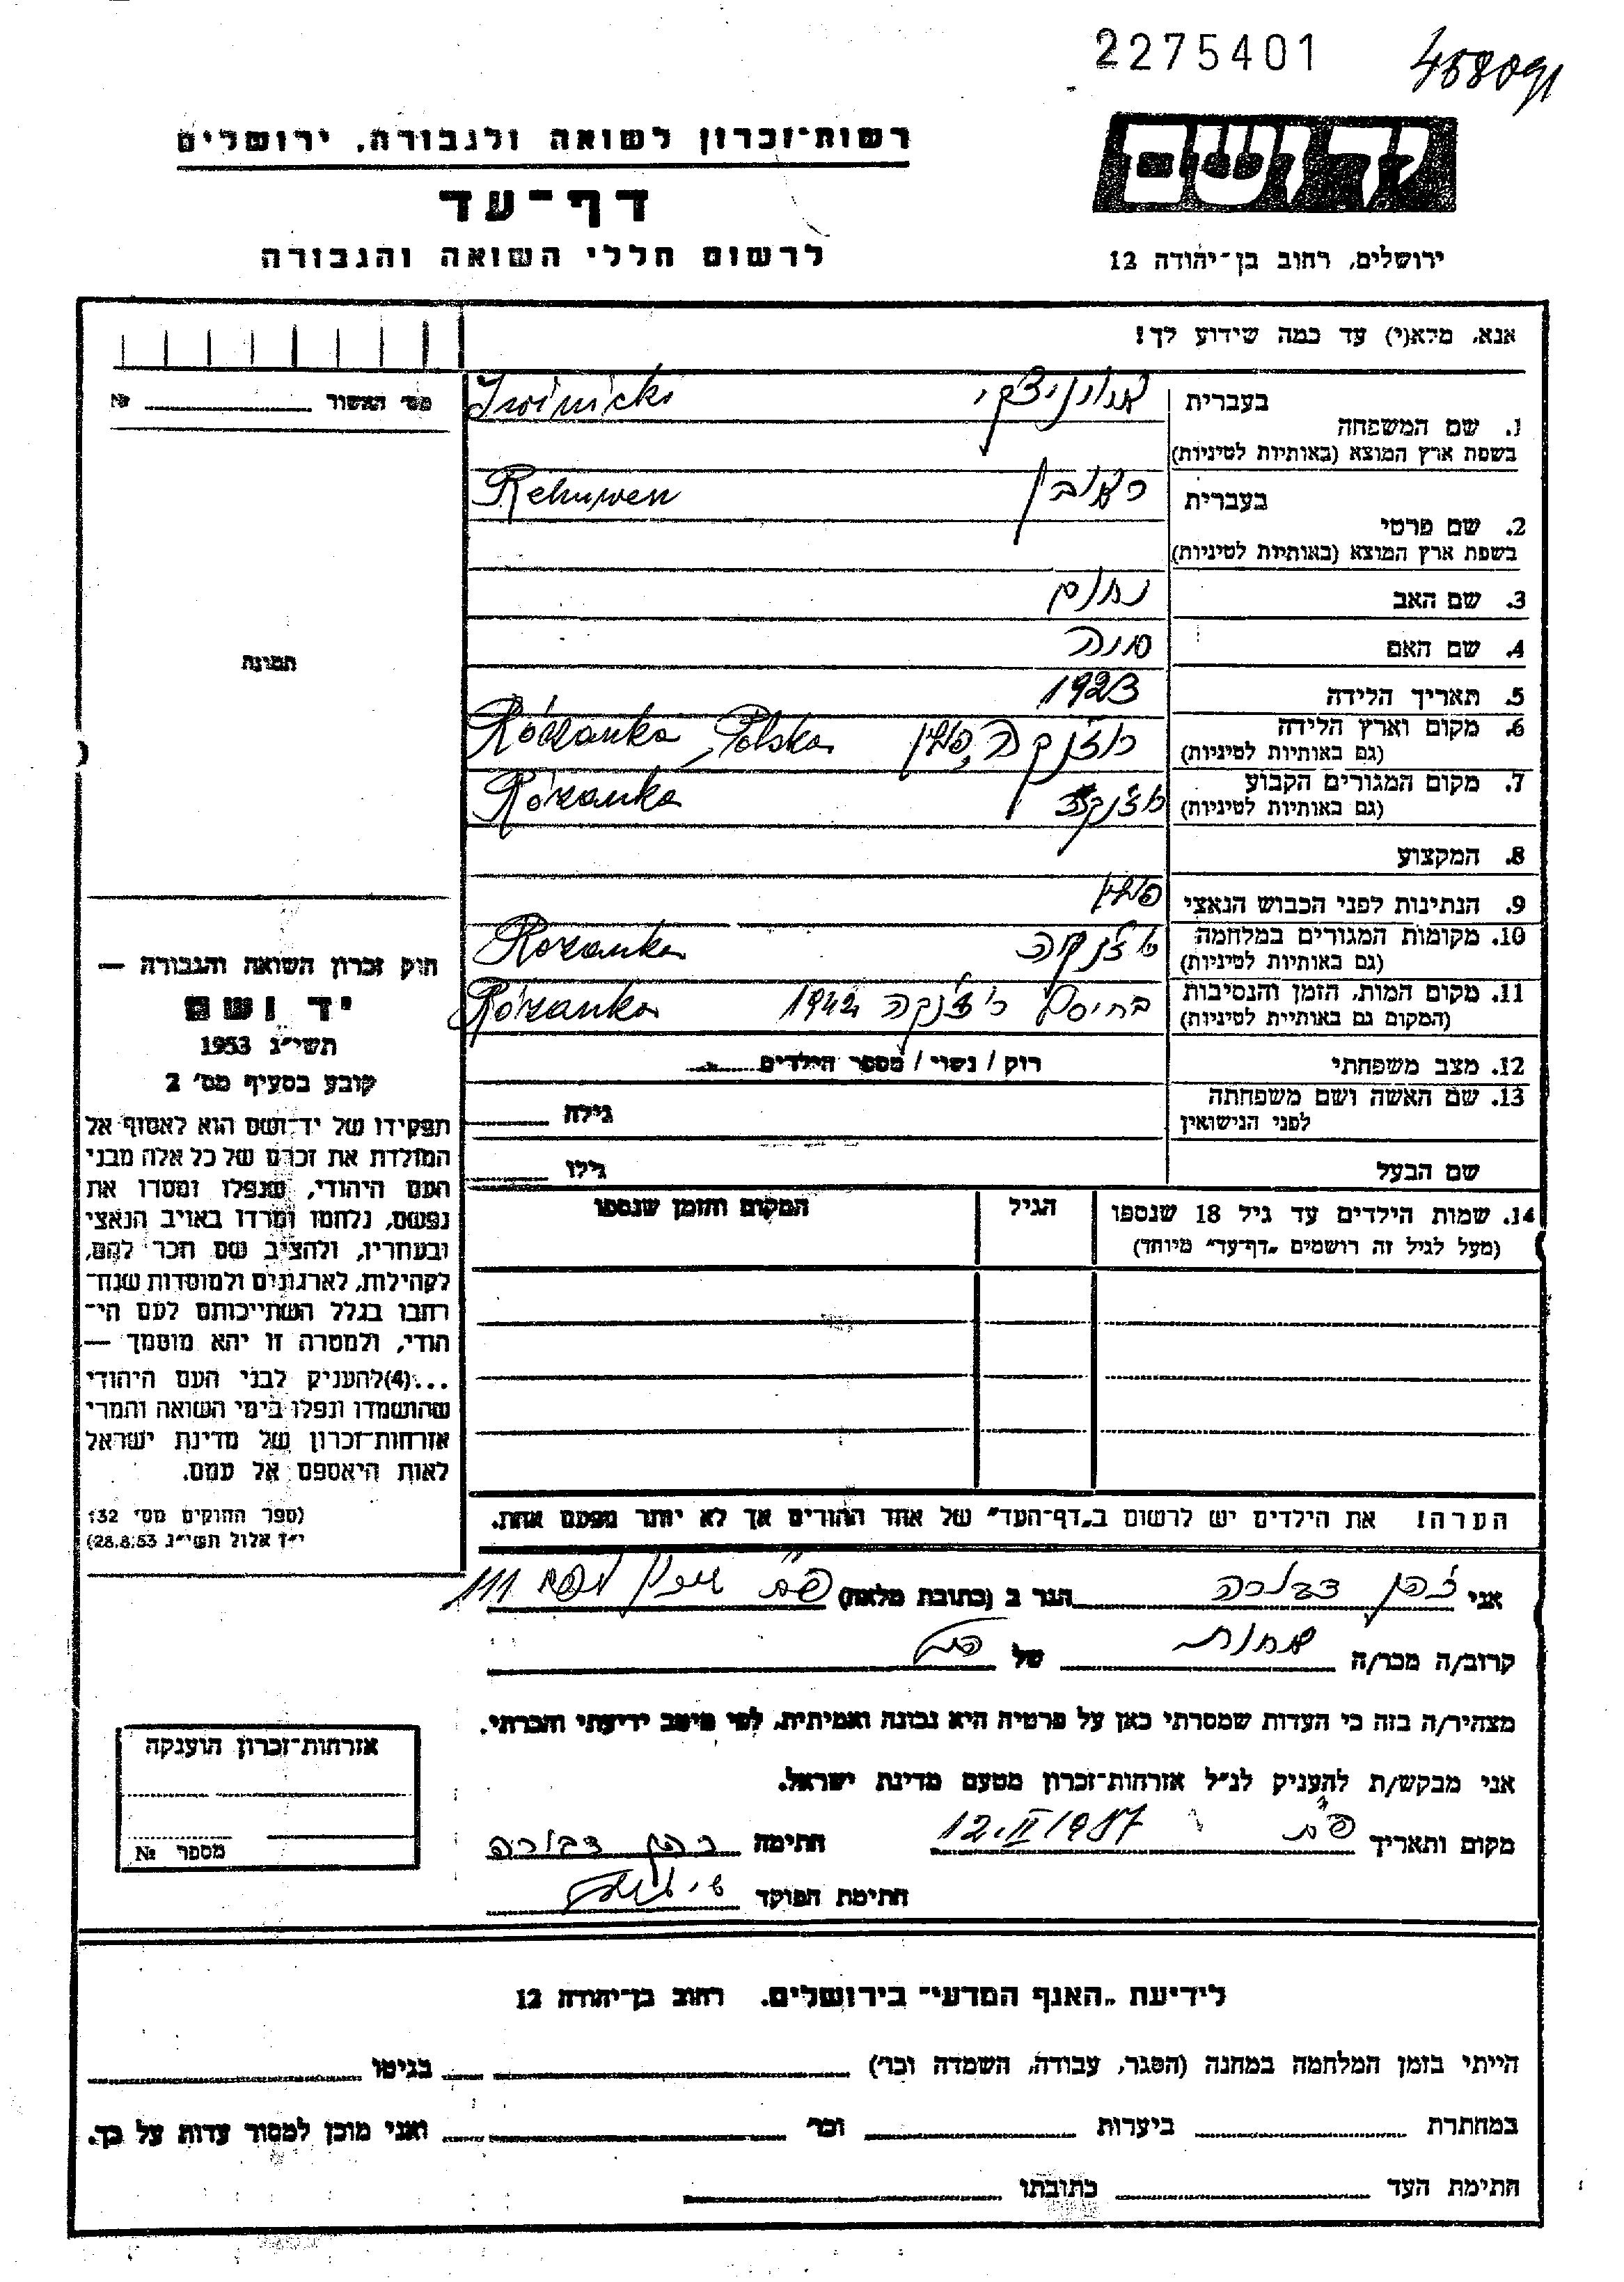 2275401
458091
רשות־זכרון לשואה ולגבורה, ירושלים
דף־עד
לרשום חללי השואה והגבורה
ידושם
ירושלים, רחוב בן־יהודה 12
אנא, מלא(י) עד כמה שידוע לך!
מס׳ האשור № 
תמונה
1. שם המשפחה
בעברית
בשפת ארץ המוצא (באותיות לטיניות)
Iwinicki
2. שם פרטי
בעברית ראובן
בשפת ארץ המוצא (באותיות לטיניות)
Rehuwen
3. שם האב נחום
4. שם האם
5. תאריך הלידה 1923
6. מקום וארץ הלידה
(גם באותיות לטיניות)
רוז'נקה, פולין Różanka, Polska
7. מקום המגורים הקבוע
(גם באותיות לטיניות)
רוז'נקה Różanka
8. המקצוע
9. הנתינות לפני הכבוש הנאצי פולין
10. מקומות המגורים במלחמה
(גם באותיות לטיניות)
רוז'נקה Rozanka
11. מקום המות, הזמן והנסיבות
(המקום גם באותיות לטיניות)
בחיסול רוז'נקה 1942 Różanka
12. מצב משפחתי רוק / נשוי / מספר הילדים
13. שם האשה ושם משפחתה
לפני הנישואין
גילה
שם הבעל
גילו
14. שמות הילדים עד גיל 18 שנספו
(מעל לגיל זה רושמים „דף־עד״ מיוחד)
הגיל
המקום והזמן שנספו
חוק זכרון השואה והגבורה —
יד ושם
תשי״ג 1953
קובע בסעיף מס׳ 2
תפקידו של יד־ושם הוא לאסוף אל
המולדת את זכרם של כל אלה מבני
העם היהודי, שנפלו ומסרו את
נפשם, נלחמו ומרדו באויב הנאצי
ובעוזריו, ולהציב שם וזכר להם,
לקהילות, לארגונים ולמוסדות שנח־
רבו בגלל השתייכותם לעם הי־
הודי, ולמטרה זו יהא מוסמך —
...(4) להעניק לבני העם היהודי
שהושמדו ונפלו בימי השואה והמרי
אזרחות־זכרון של מדינת ישראל
לאות היאספם אל עמם.
(ספר החוקים מס׳ 132
י״ז אלול תשי״ג 28.8.53)
הערה! את הילדים יש לרשום ב„דף־העד״ של אחד ההורים אך לא יותר מפעם אחת.
אני כהן דבורה הגר ב (כתובת מלאה) פ״ת 111
קרוב/ה מכר/ה אחות של
מצהיר/ה בזה כי העדות שמסרתי כאן על פרטיה היא נכונה ואמיתית, לפי מיטב ידיעתי והכרתי.
אני מבקש/ת להעניק לנ״ל אזרחות־זכרון מטעם מדינת ישראל.
מקום ותאריך פ״ת 12.II 1957 חתימה כהן דבורה
חתימת הפוקד
אזרחות־זכרון הוענקה
מספר №
לידיעת „האגף המדעי״ בירושלים. רחוב בן־יהודה 12
הייתי בזמן המלחמה במחנה (הסגר, עבודה, השמדה וכו׳) בגיטו
במחתרת ביערות וכו׳ ואני מוכן למסור עדות על כך.
חתימת העד כתובתו